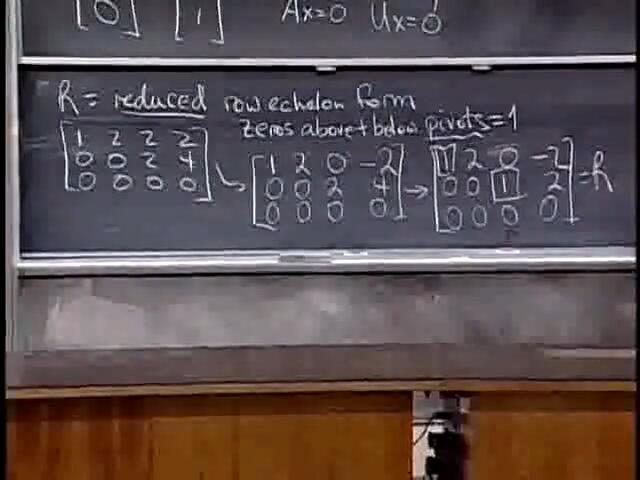 [0] [1] Ax=0 Ux=0
R = reduced row echelon form
zeros above + below pivots=1
[1 2 2 2] [1 2 0 -2] [1 2 0 -2]
[0 0 2 4] → [0 0 2 4] → [0 0 1 2] = R
[0 0 0 0] [0 0 0 0] [0 0 0 0]